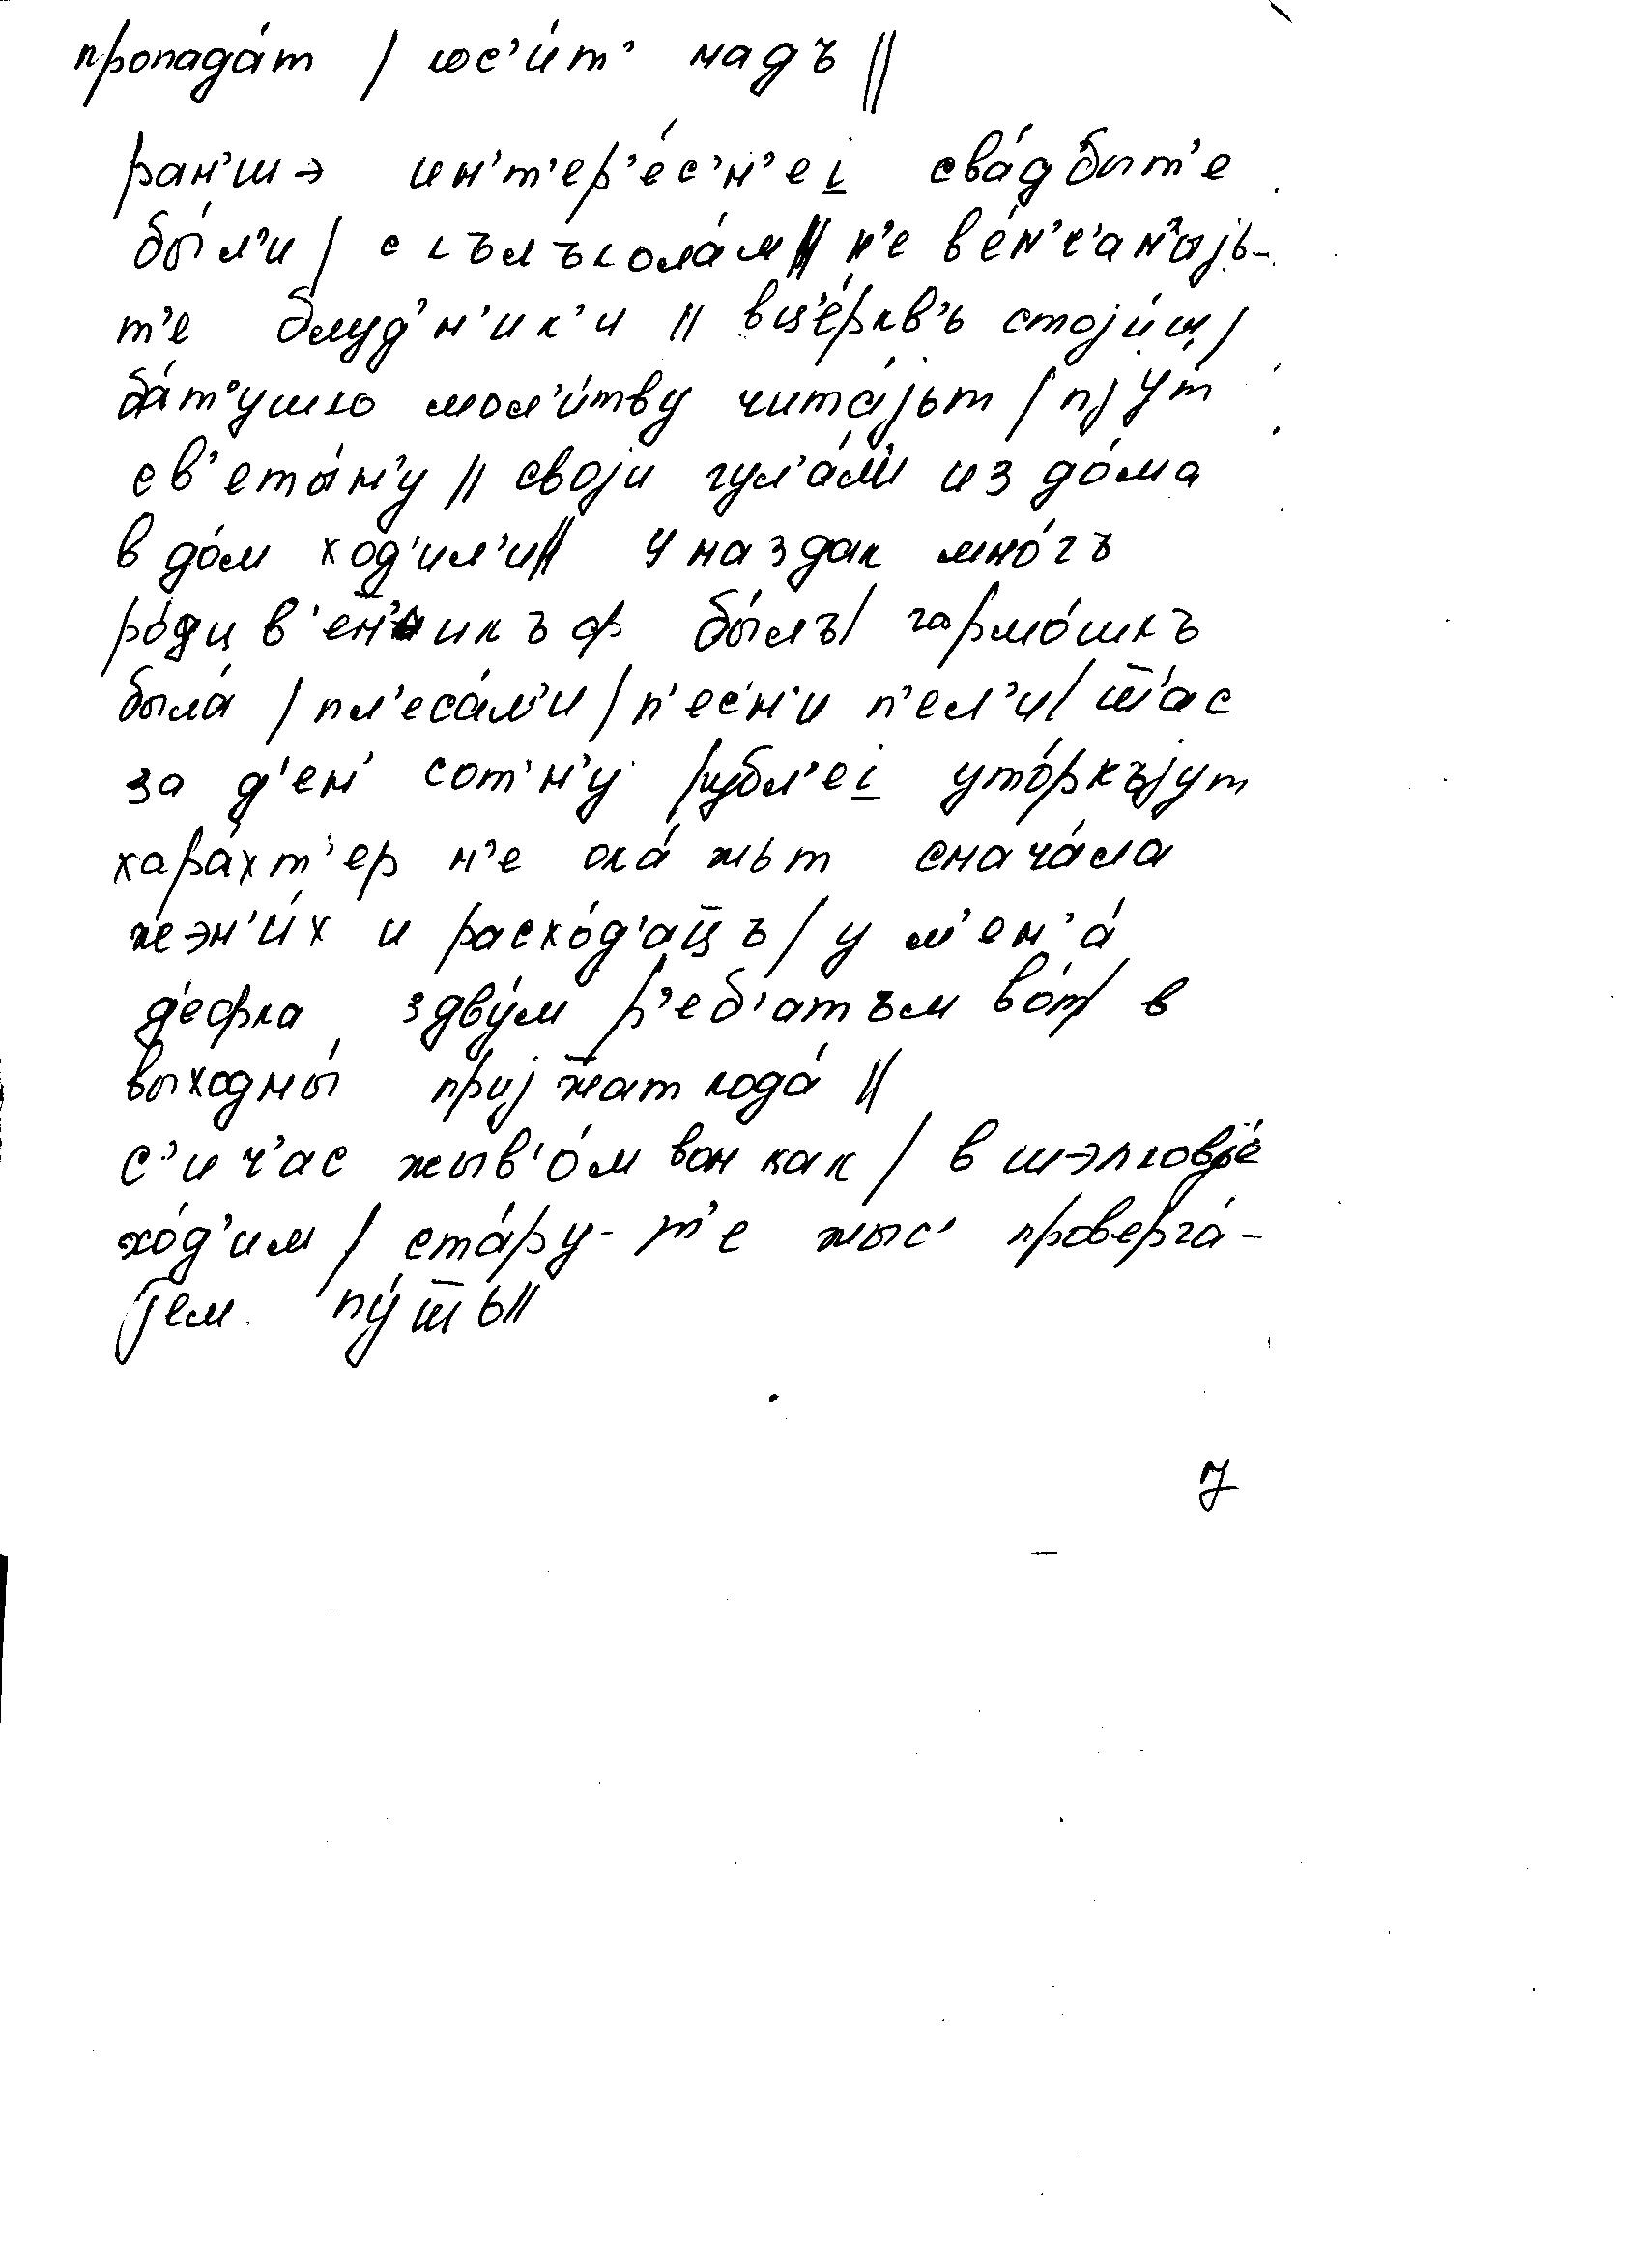 пропада́т / кос'и́т' надъ //
ран'шэ ин'т'ер'е́с'н'еi̯ сва́дбыт'е
бы́л'и / с кълъкола́м // н'е ве́н'ч'ан'ыjь-
т'е блуд'н'ик'и // вц'е́рквъ стоjи́ш /
ба́т'ушко мол'и́тву чита́jьт / пjут
св'еты́н'у // своjи гул'а́л'и из до́ма
в до́м ход'ил'и // у нас здак мно́гъ
ро́дцв'ен̄'икъф бы́лъ / гармо́шкъ
была́ / пл'еса́л'и / п'ес'н'и п'ел'и / ш̄'ас
за д'ен' сот'н'у рубл'еi̯ уто́ркъjут
хара́хт'ер н'е ока́жьт снача́ла
жэн'и́х и расхо́д'ац̄ъ / у м'ен'а́
д'ефка здву́м р'еб'атъм во́т / в
выходны́ приjж̄ат кода́ //
с'ич'ас жыв'о́м вон как / в шэлковjе́
хо́д'им / ста́ру-т'е жыс' проверга́-
jем пу́ш̄ь //
7